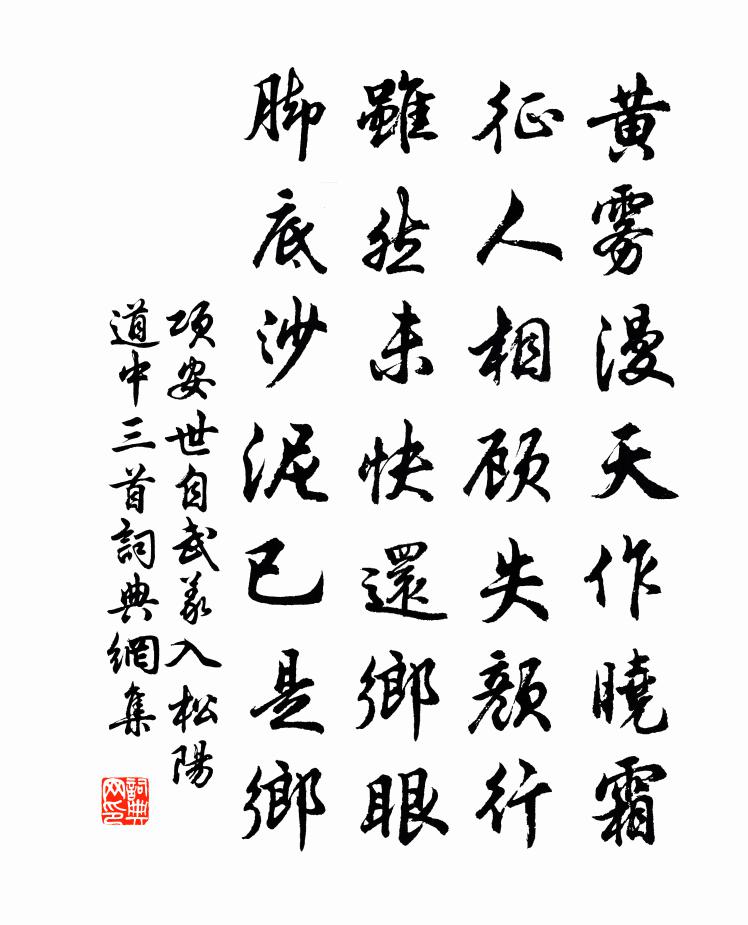 黄雾漫天作曉霜
征人相顾失颜行
雖然未快還鄉眼
脚底沙泥已是鄉
项安世自武義入松陽
道中三首詞典網集
詞典网印